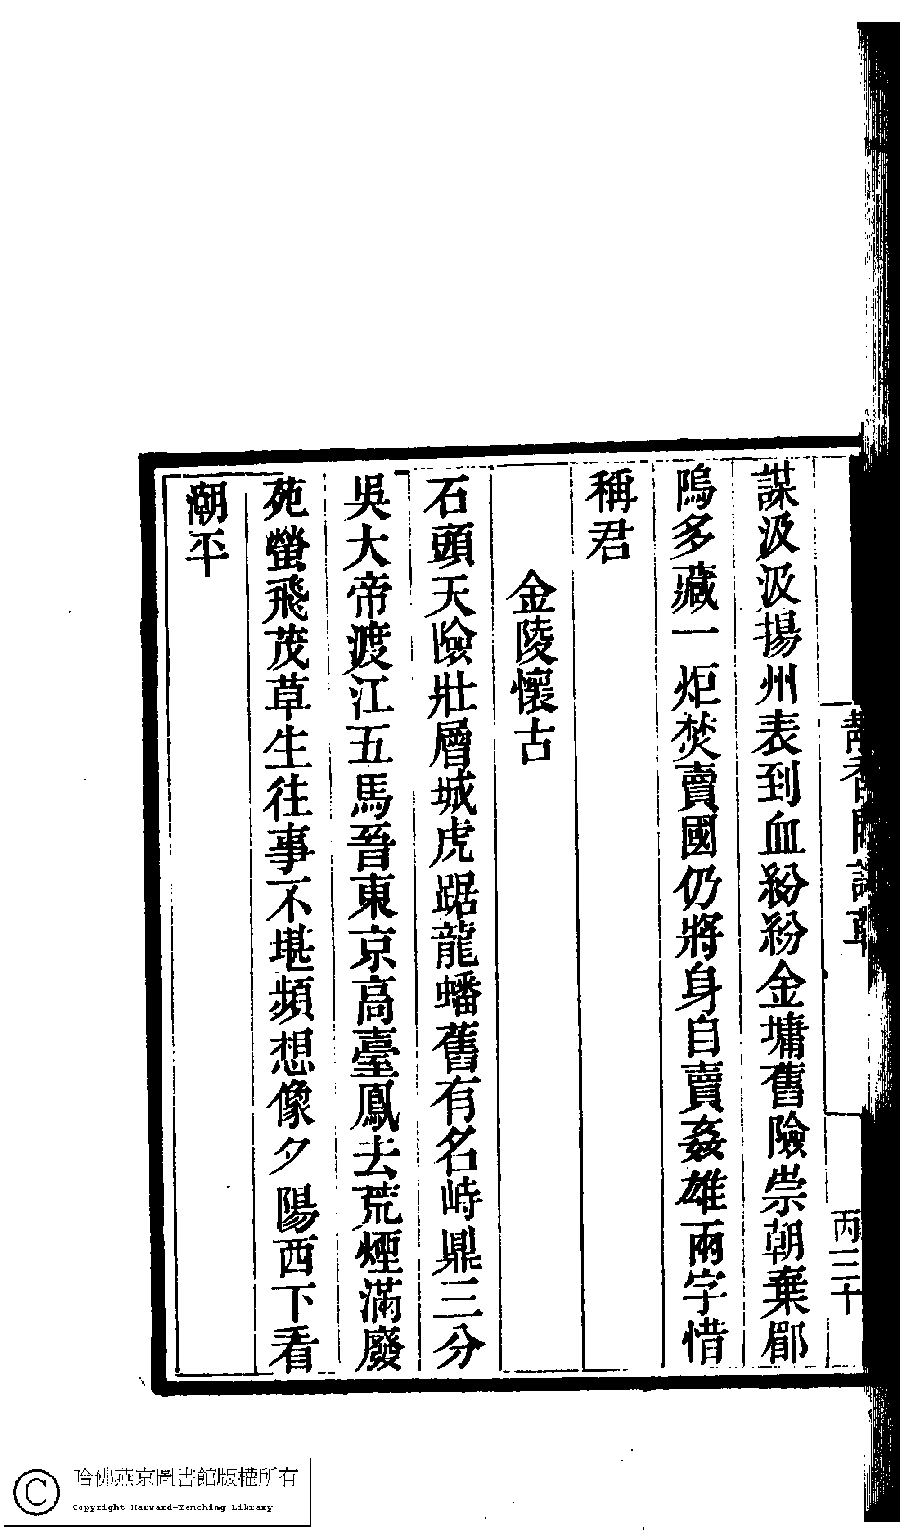 謀汲汲揚州表到血紛紛金墉舊險崇朝棄郿
塢多藏一炬焚賣國仍將身自賣姦雄兩字惜
稱君
金陵懷古
石頭天險壯層城虎踞龍蟠舊有名峙鼎三分
吳大帝渡江五馬晉東京高臺鳳去荒煙滿廢
苑螢飛茂草生往事不堪頻想像夕陽西下看
潮平
丙三十
哈佛燕京圖書館版權所有
Copyright Harvard-Yenching Library